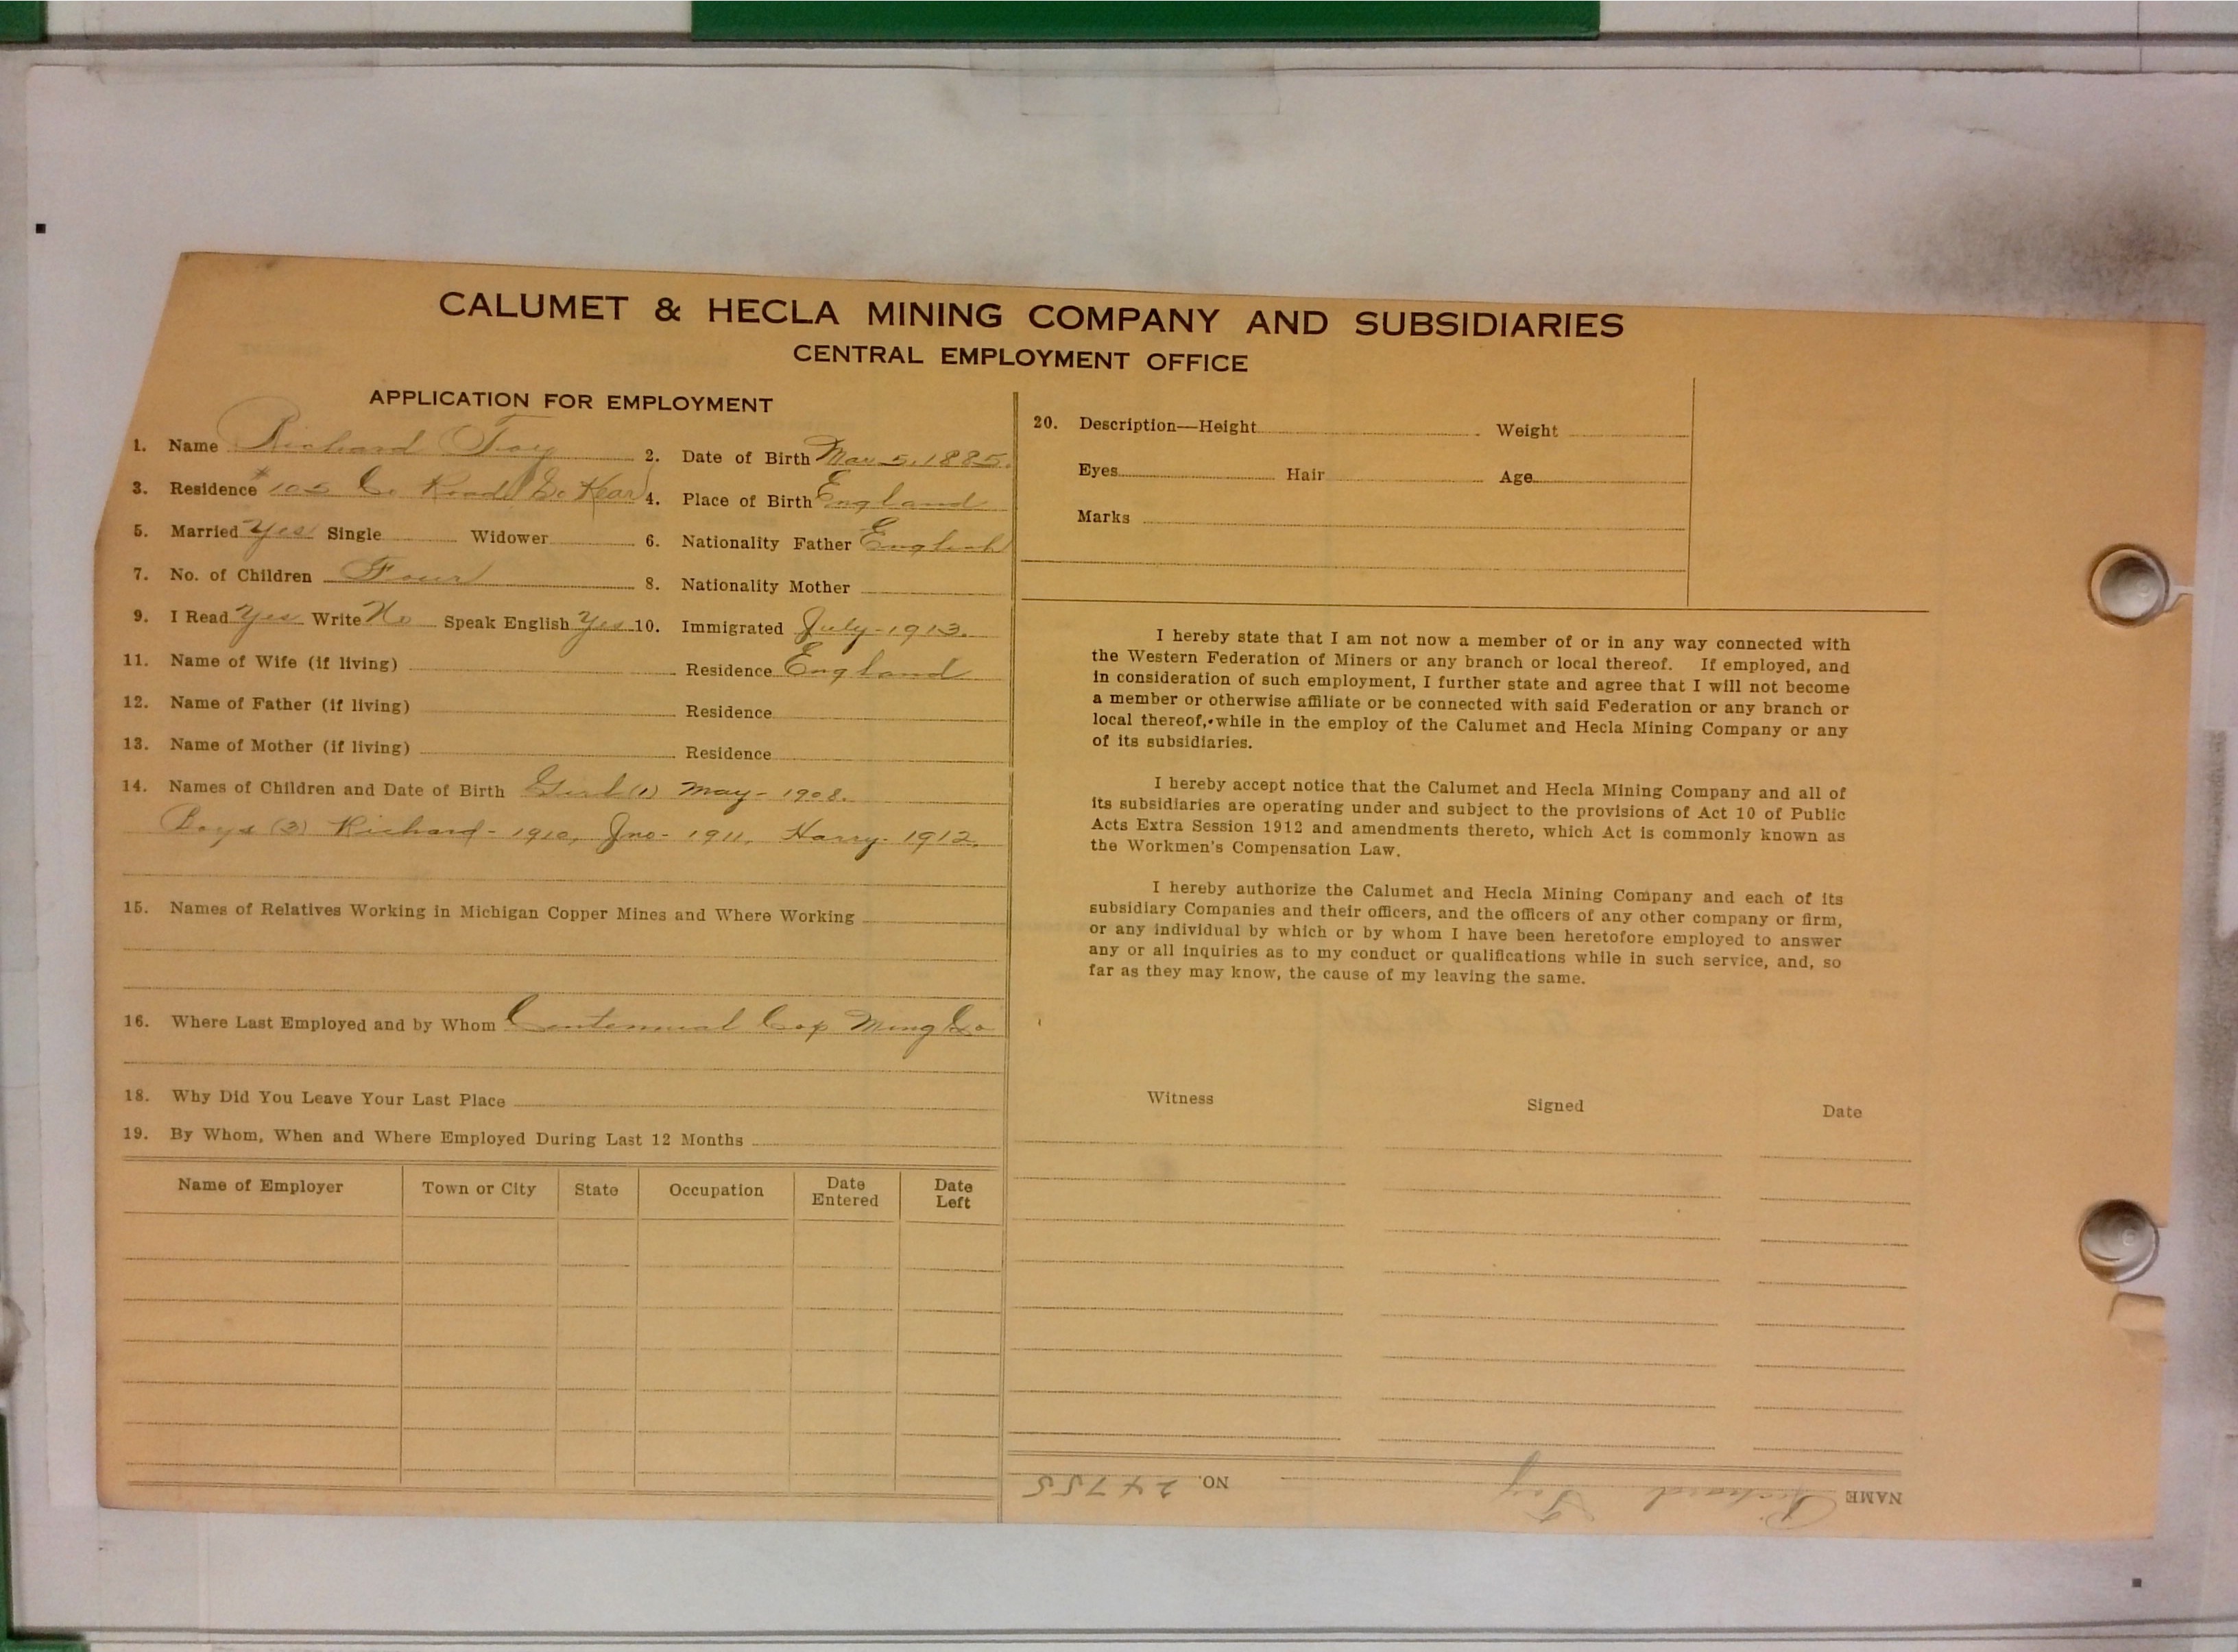 CALUMET & HECLA MINING COMPANY AND SUBSIDIARIES
CENTRAL EMPLOYMENT OFFICE
APPLICATION FOR EMPLOYMENT
1. Name Richard Foy 2. Date of Birth Mar 5, 1885.
3. Residence #105 C. Road So Kear 4. Place of Birth England
5. Married Yes Single Widower 6. Nationality Father English
7. No. of Children Four 8. Nationality Mother
9. I Read Yes Write No Speak English Yes 10. Immigrated July-1913.
11. Name of Wife (if living) Residence England
12. Name of Father (if living) Residence
13. Name of Mother (if living) Residence
14. Names of Children and Date of Birth Girl (1) May - 1908.
Boys (3) Richard - 1910, Jno - 1911, Harry - 1912.
15. Names of Relatives Working in Michigan Copper Mines and Where Working
16. Where Last Employed and by Whom Centennial Cop Ming Co
18. Why Did You Leave Your Last Place
19. By Whom, When and Where Employed During Last 12 Months
Name of Employer Town or City State Occupation Date Entered Date Left
20. Description—Height Weight
Eyes Hair Age
Marks
I hereby state that I am not now a member of or in any way connected with
the Western Federation of Miners or any branch or local thereof. If employed, and
in consideration of such employment, I further state and agree that I will not become
a member or otherwise affiliate or be connected with said Federation or any branch or
local thereof, while in the employ of the Calumet and Hecla Mining Company or any
of its subsidiaries.
I hereby accept notice that the Calumet and Hecla Mining Company and all of
its subsidiaries are operating under and subject to the provisions of Act 10 of Public
Acts Extra Session 1912 and amendments thereto, which Act is commonly known as
the Workmen's Compensation Law.
I hereby authorize the Calumet and Hecla Mining Company and each of its
subsidiary Companies and their officers, and the officers of any other company or firm,
or any individual by which or by whom I have been heretofore employed to answer
any or all inquiries as to my conduct or qualifications while in such service, and, so
far as they may know, the cause of my leaving the same.
Witness Signed Date
NAME Richard Foy NO. 24755